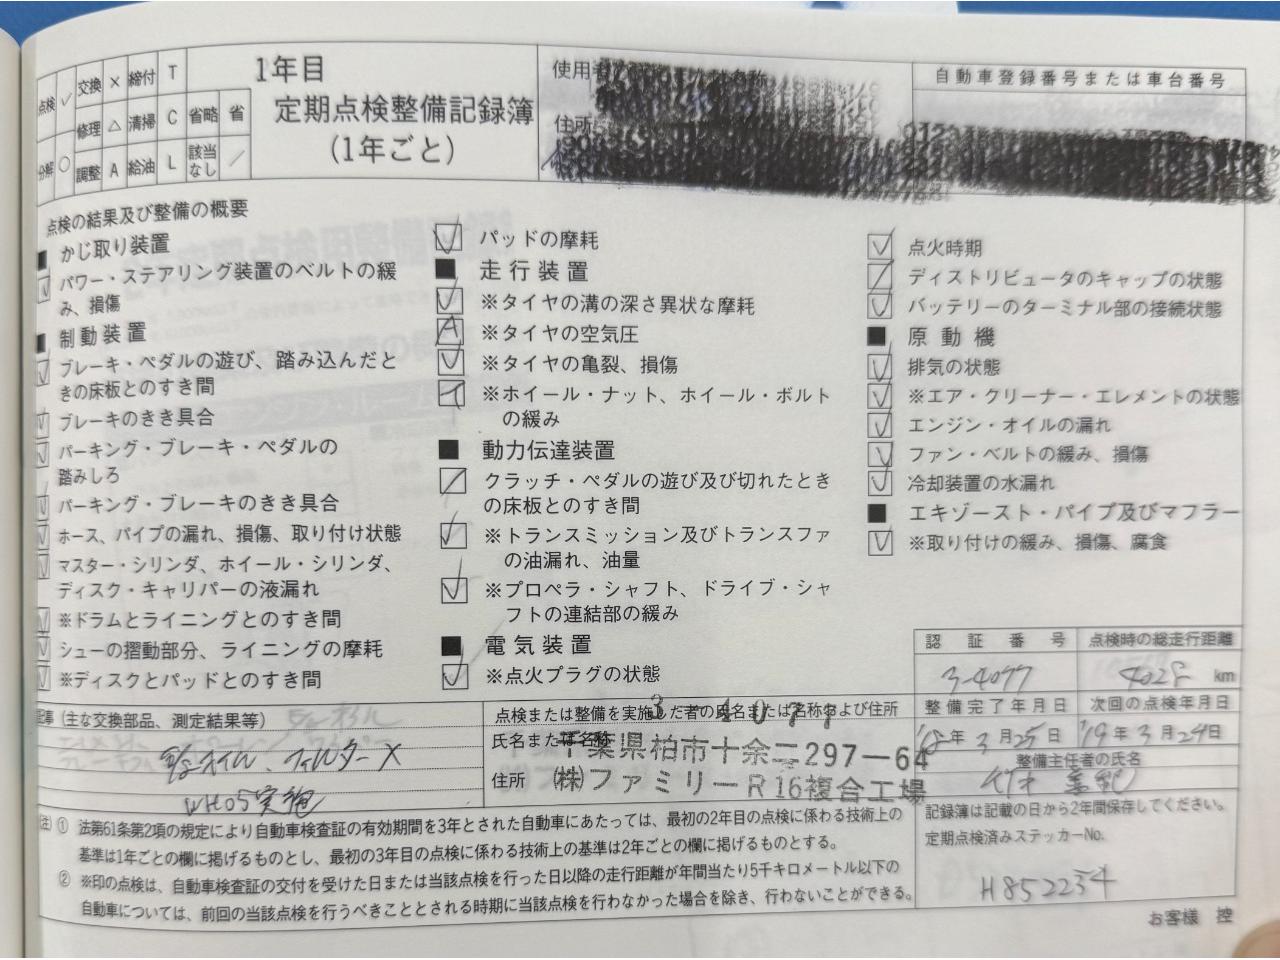 点検 ✓ 交換 × 締付 T
修理 △ 清掃 C 省略 省
分解 ○ 調整 A 給油 L 該当なし ／
1年目
定期点検整備記録簿
(1年ごと)
使用者
住所
自動車登録番号または車台番号
点検の結果及び整備の概要
■ かじ取り装置
パワー・ステアリング装置のベルトの緩
み、損傷
■ 制動装置
ブレーキ・ペダルの遊び、踏み込んだと
きの床板とのすき間
ブレーキのきき具合
パーキング・ブレーキ・ペダルの
踏みしろ
パーキング・ブレーキのきき具合
ホース、パイプの漏れ、損傷、取り付け状態
マスター・シリンダ、ホイール・シリンダ、
ディスク・キャリパーの液漏れ
※ドラムとライニングとのすき間
シューの摺動部分、ライニングの摩耗
※ディスクとパッドとのすき間
パッドの摩耗
■ 走行装置
※タイヤの溝の深さ異状な摩耗
A ※タイヤの空気圧
※タイヤの亀裂、損傷
T ※ホイール・ナット、ホイール・ボルト
の緩み
■ 動力伝達装置
クラッチ・ペダルの遊び及び切れたとき
の床板とのすき間
※トランスミッション及びトランスファ
の油漏れ、油量
※プロペラ・シャフト、ドライブ・シャ
フトの連結部の緩み
■ 電気装置
※点火プラグの状態
点火時期
ディストリビュータのキャップの状態
バッテリーのターミナル部の接続状態
■ 原動機
排気の状態
※エア・クリーナー・エレメントの状態
エンジン・オイルの漏れ
ファン・ベルトの緩み、損傷
冷却装置の水漏れ
■ エキゾースト・パイプ及びマフラー
※取り付けの緩み、損傷、腐食
認証番号 点検時の総走行距離
3-4077 4028 km
整備完了年月日 次回の点検年月日
'18年3月25日 '19年3月24日
整備主任者の氏名
記事 (主な交換部品、測定結果等)
E/gオイル、フィルターX
WH05実施
点検または整備を実施した者の氏名または名称および住所
3-4077
氏名または名称
千葉県柏市十余二297-64
住所 (株)ファミリーR16複合工場
記録簿は記載の日から2年間保存してください。
定期点検済みステッカーNo.
H852254
(注) ① 法第61条第2項の規定により自動車検査証の有効期間を3年とされた自動車にあたっては、最初の2年目の点検に係わる技術上の
基準は1年ごとの欄に掲げるものとし、最初の3年目の点検に係わる技術上の基準は2年ごとの欄に掲げるものとする。
② ※印の点検は、自動車検査証の交付を受けた日または当該点検を行った日以降の走行距離が年間当たり5千キロメートル以下の
自動車については、前回の当該点検を行うべきこととされる時期に当該点検を行わなかった場合を除き、行わないことができる。
お客様 控